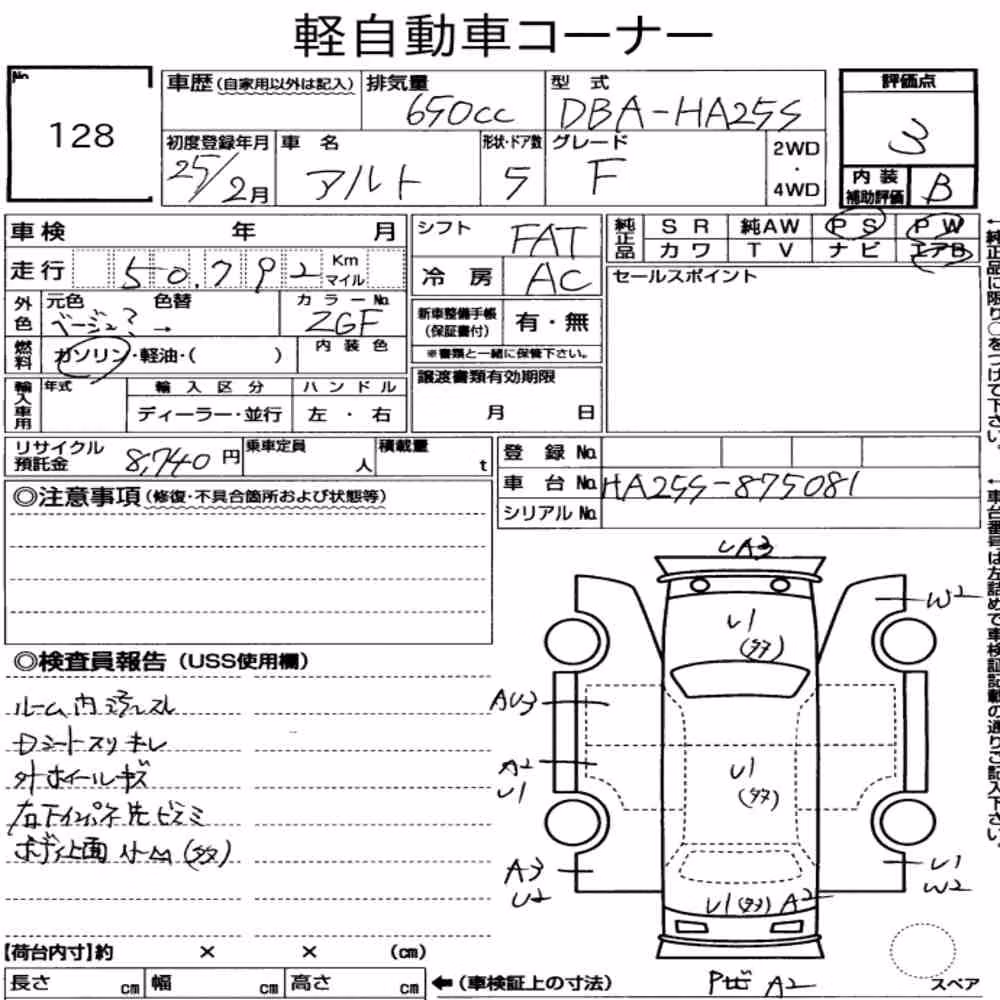 軽自動車コーナー
No.
128
車歴 (自家用以外は記入) 排気量 型式 評価点
650cc DBA-HA25S 3
初度登録年月 車名 形状・ドア数 グレード 2WD・4WD
25/2月 アルト 5 F
内装補助評価 B
車検 年 月 シフト FAT
純正品 SR 純AW PS PW
カワ TV ナビ エアB
走行 50,792 Km マイル
冷房 AC
セールスポイント
外色 元色 色替 カラーNo.
ベージュ? → ZGF
新車整備手帳(保証書付) 有・無
※書類と一緒に保管下さい。
燃料 ガソリン・軽油・( ) 内装色
輸入車用 年式 輸入区分 ハンドル
ディーラー・並行 左・右
譲渡書類有効期限
月 日
リサイクル預託金 8,740円 乗車定員 人 積載量 t
登録No.
車台No. HA25S-875081
シリアルNo.
←純正品に限り○をつけて下さい。
←車台番号は左詰めで車検証記載の通りご記入下さい。
◎注意事項 (修復・不具合箇所および状態等)
◎検査員報告 (USS使用欄)
ルーム内汚レスレ
Dシートスリキレ
外ホイールキズ
ボディ上面
UA3
W2
U1
AU3
A2
U1
U1
A3
U2
U1
W2
U1 A2
A2
スペア
【荷台内寸】約 × × (cm)
長さ cm 幅 cm 高さ cm ←(車検証上の寸法)